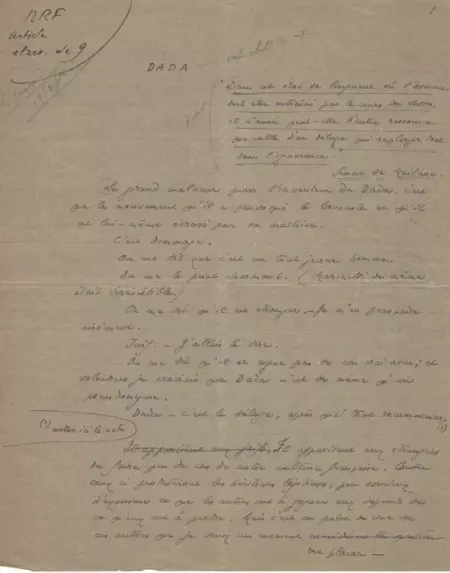 NRF
article
1
DADA
Dans cet état de langueur où l'homme
doit être entraîné par le cours des choses,
il n'aura peut-être d'autre ressource
que celle d'un déluge qui replonge tout
dans l'ignorance.
Senac de Meilhan.
Le grand malheur pour l'inventeur de Dada, c'est
que le mouvement qu'il a provoqué le bouscule et qu'il
est lui-même écrasé par sa machine.
C'est dommage.
On me dit que c'est un tout jeune homme.
On me le peint charmant. (Marinetti de même
était irrésistible.)
On me dit qu'il est étranger. — Je m'en persuade
aisément.
Juif. — J'allais le dire.
On me dit qu'il ne signe pas de son vrai nom; et
volontiers je croirais que Dada n'est de même qu'un
pseudonyme.
Dada — c'est le déluge, après quoi tout recommence. (1)
(1) mettre ici la note
Il appartient aux juifs, Il appartient aux étrangers
de faire peu de cas de notre culture française. Contre
ceux-ci protesteront les héritiers légitimes, peu soucieux
ce que les autres ont à gagner aux dépens de
ce qu'eux ont à perdre. Mais c'est au point de vue de
ces autres que je veux un moment
me placer —